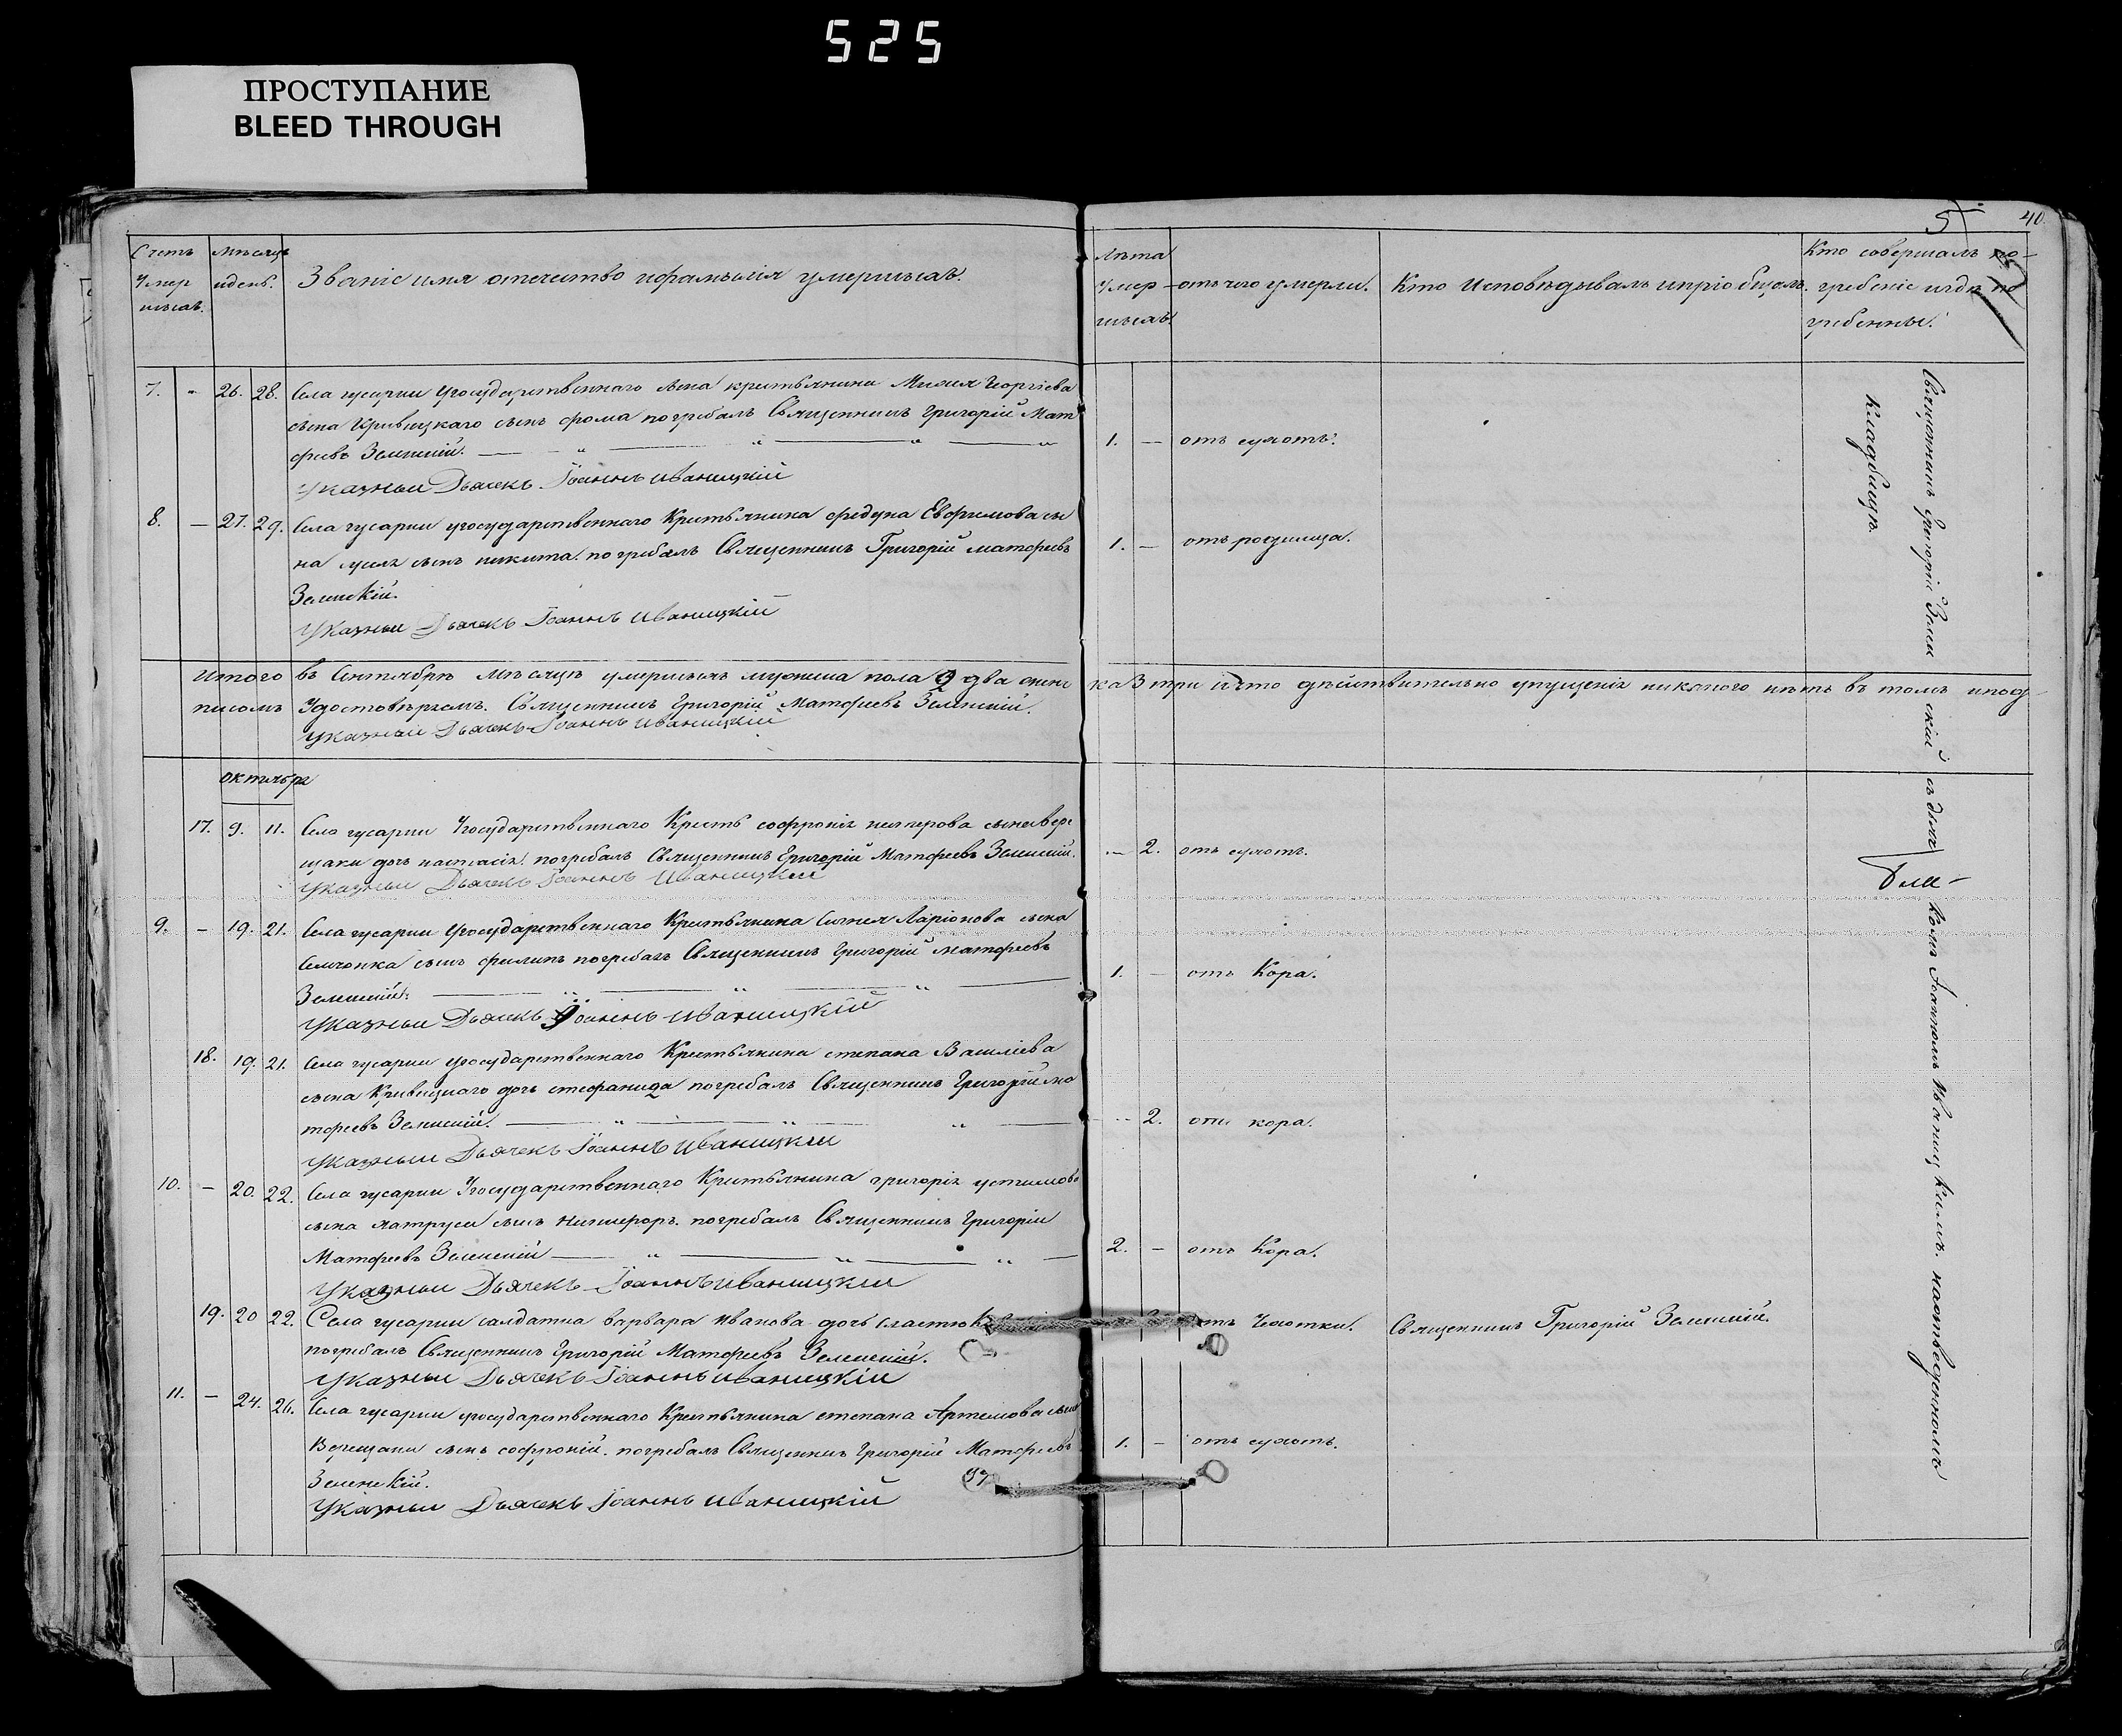 525
ПРОСТУПАНИЕ
BLEED THROUGH
40.
Счетъ умер шихъ.
мѣсяцъ идень.
Званіе имя отечество ифамилія умершихъ.
Лѣта умер шихъ.
отъ чего умерли.
Кто Исповѣдывалъ ипріобщалъ.
Кто совершалъ по-
гребеніе игдѣ по
гребенны.
7. 26. 28. Села гусарки государственнаго крестьянина Георгіева
сына Кривицкаго сынъ фома погребалъ Священникъ Григорій Мат
феевъ Зеленскій.
1. — отъ сухотъ.
Указный Дьячекъ Іоаннъ иваницкій
8. — 27. 29. Села гусарки государственнаго Крестьянина Евфимова сы
на сынъ никита. погребалъ Священникъ Григорій матфеевъ
Зеленскій.
1. — отъ родимца.
Указный Дьячекъ Іоаннъ иваницкій
Итого въ Сентябрѣ мѣсяцѣ умершихъ мужеска пола 2 два женс ка 3 три и что дѣйствительно упущенія никакого нѣтъ въ томъ ипод
писомъ Удостовѣряемъ. Священникъ Григорій Матфеевъ Зеленскій.
Указный Дьячекъ Іоаннъ иваницкій
октября
17. 9. 11. Села гусарки государственнаго Крестья софронія сына вере
щаки дочь настасія. погребалъ Священникъ Григорій Матфеевъ Зеленскій.
— 2. отъ сухотъ.
Указный Дьячекъ Іоаннъ Иваницкій
9. — 19. 21. Села гусарки государственнаго Крестьянина Ларіонова сына
сынъ филипъ погребалъ Священникъ Григорій матфеевъ
Зеленскій.
1. — отъ Кора.
Указный Дьячекъ Іоаннъ иваницкій
18. 19. 21. Села гусарки государственнаго Крестьянина степана Василіева
сына Кривицкаго дочь стефанида погребалъ Священникъ Григорій ма
тфеевъ Зеленскій.
2. отъ кора.
Указный Дьячекъ Іоаннъ Иваницкій
10. — 20. 22. Села гусарки государственнаго Крестьянина григорія устимова
сына сынъ Никифоръ. погребалъ Священникъ Григорій
Матфеевъ Зеленскій
2. — отъ Кора.
Указный Дьячекъ Іоаннъ иваницкій
19. 20 22. Села гусарки салдатка варвара иванова дочь
отъ Чахотки. Священникъ Григорій Зеленскій.
погребалъ Священникъ Григорій Матфеевъ Зеленскій.
Указный Дьячекъ Іоаннъ иваницкій
11. — 24. 26. Села гусарки государственнаго Крестьянина степана Артемова сына
Верещаки сынъ софроній. погребалъ Священникъ Григорій Матфеевъ
Зеленскій.
1. — отъ сухотъ.
Указный Дьячекъ Іоаннъ иваницкій
Священникъ Григорій Зелен скій съ дьяч комъ Іоанномъ Иваниц кимъ. наотведенномъ
кладбищѣ.